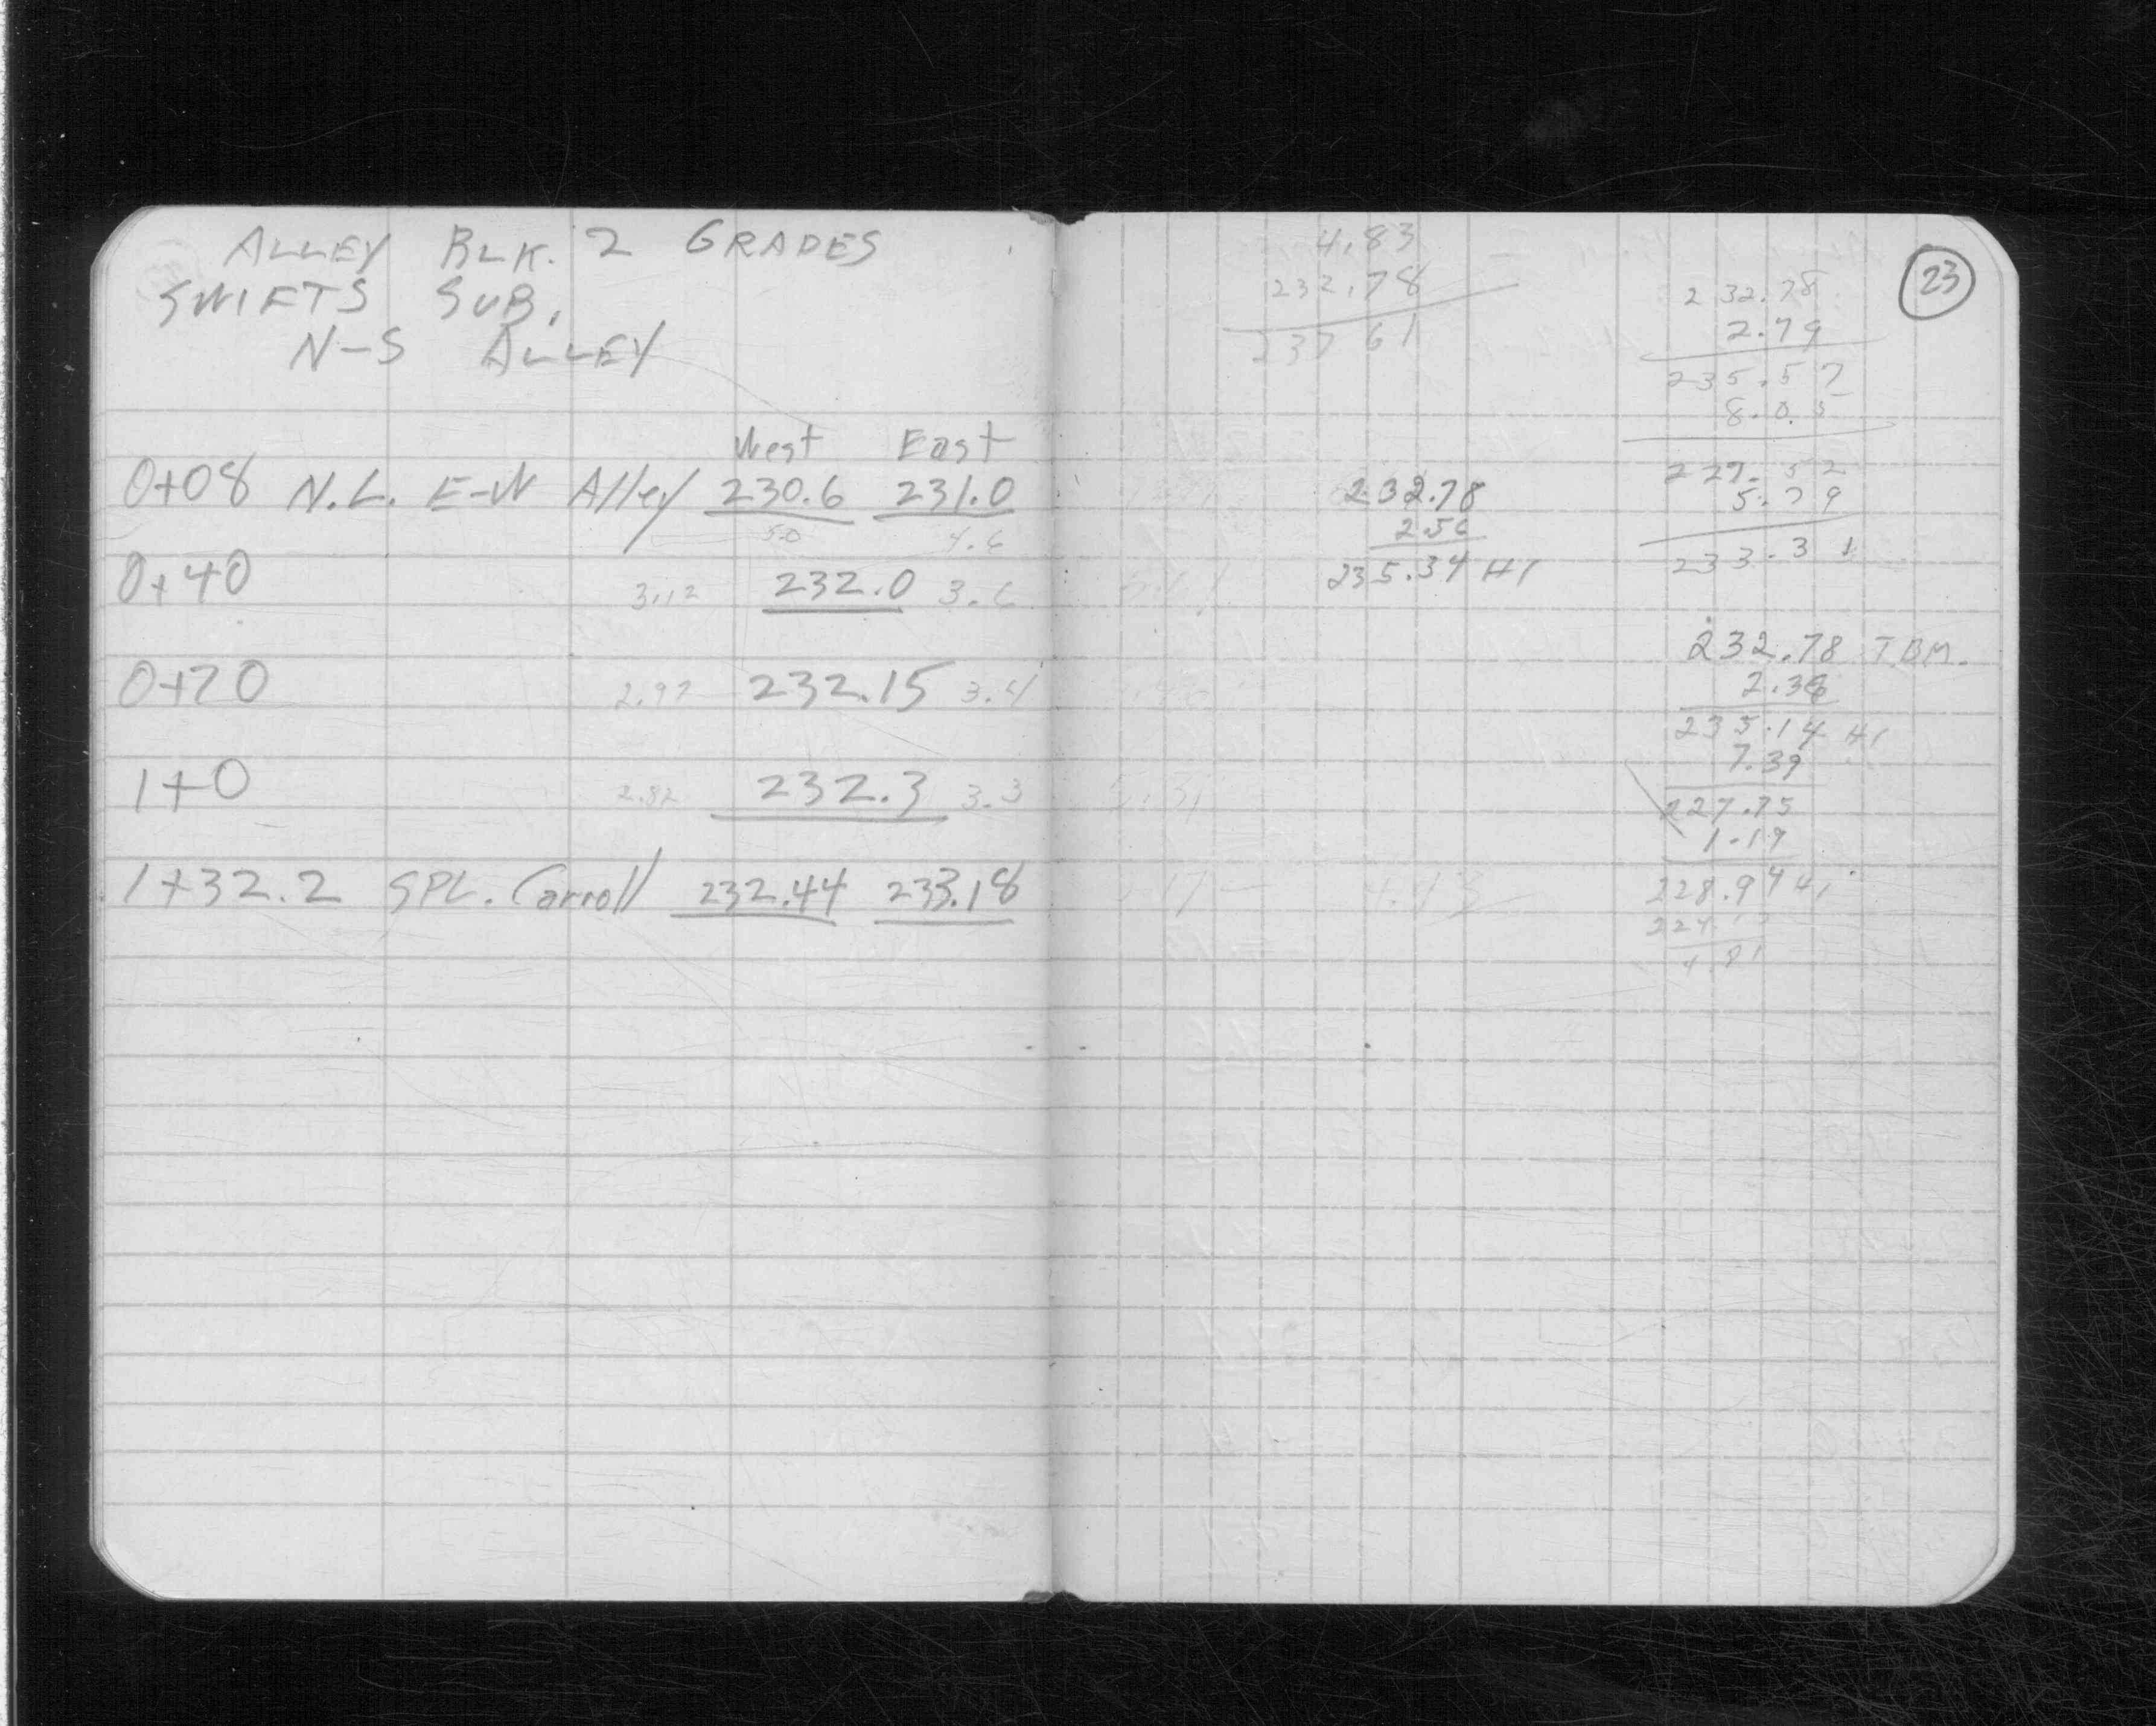 ALLEY BLK. 2 GRADES
SWIFTS SUB.
N-S ALLEY
West East
0+08 N.L. E-W Alley 230.6 231.0
5.0 4.6
0+40 3.12 232.0 3.6
0+70 2.97 232.15 3.4
1+0 2.82 232.3 3.3
1+32.2 SPL. Carroll 232.44 233.18
23
4.83
232.78
237 61
232.78
2.56
235.34 HI
5.31
4.43
232.78
2.79
235.57
8.05
227.52
5.79
233.31
232.78 T.B.M.
2.36
235.14 HI
7.39
227.75
1.19
228.94 HI
4.81